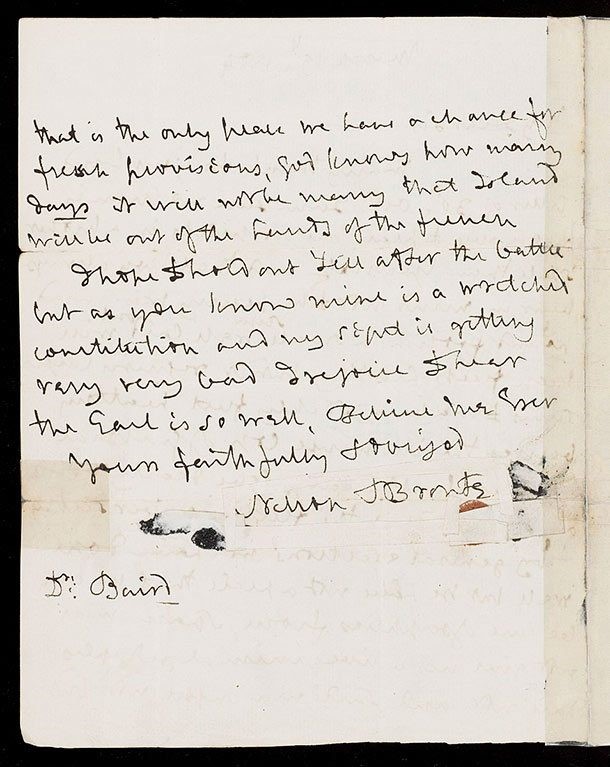 that is the only place we have a chance for
fresh provisions, God knows how many
days it will not be many that Island
will be out of the hands of the french
I hope to hold out till after the battle
but as you know mine is a wretched
constitution and my sight is getting
very very bad I rejoice to hear
the Earl is so well, Believe me Ever
Yours faithfully &
Nelson & Bronte
Dr: Baird